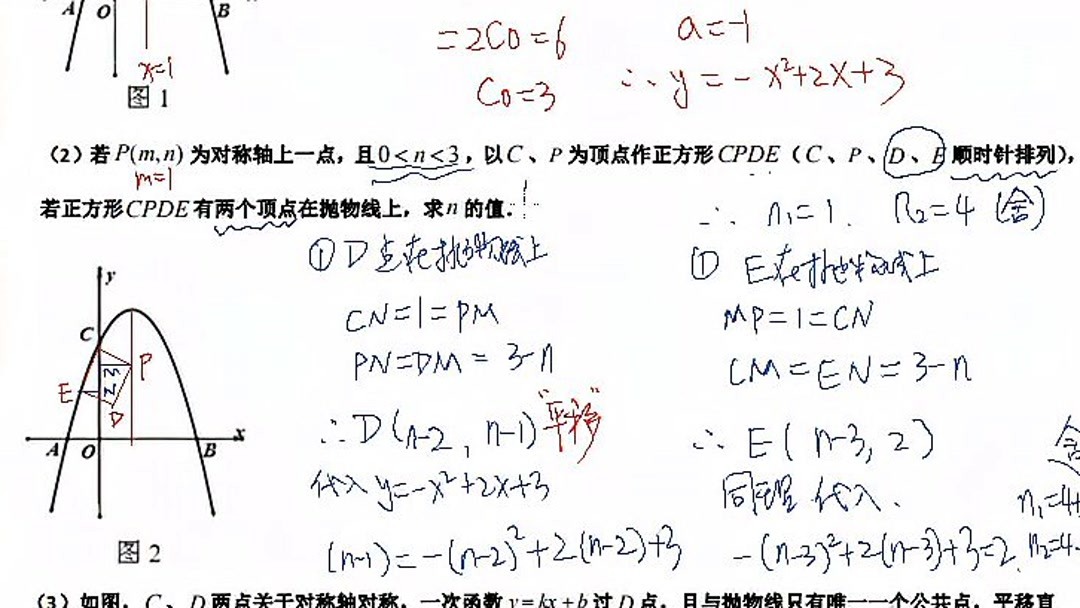 A O B
x=1
图 1
=2CO=6
CO=3
a=-1
∴ y=-x²+2x+3
(2) 若 P(m,n) 为对称轴上一点，且 0<n<3，以 C、P 为顶点作正方形 CPDE（C、P、D、E 顺时针排列），
m=1
若正方形 CPDE 有两个顶点在抛物线上，求 n 的值.
∴ n₁=1. n₂=4 (舍)
① D点在抛物线上
CN=1=PM
PN=DM=3-n
∴ D(n-2, n-1) "平移"
代入 y=-x²+2x+3
(n-1)=-(n-2)²+2(n-2)+3
① E在抛物线上
MP=1=CN
CM=EN=3-n
∴ E(n-3, 2)
同理 代入.
-(n-3)²+2(n-3)+3=2.
舍
n₁=4+
n₂=4-
y
C
E
P
M
N
D
A O B x
图 2
(3) 如图，C、D 两点关于对称轴对称，一次函数 y=kx+b 过 D 点，且与抛物线只有唯一一个公共点，平移直